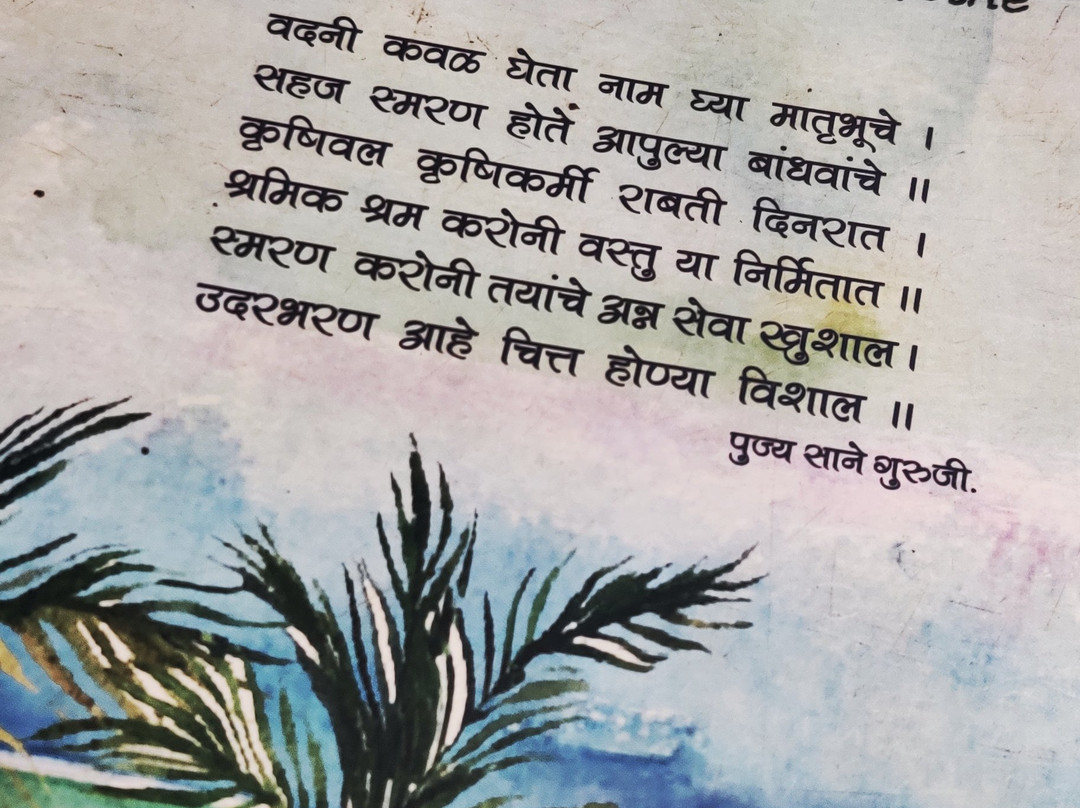 वदनी कवळ घेता नाम घ्या मातृभूचे ।
सहज स्मरण होतें आपुल्या बांधवांचे ॥
कृषिवल कृषिकर्मी राबती दिनरात ।
श्रमिक श्रम करोनी वस्तु या निर्मितात ॥
स्मरण करोनी तयांचे अन्न सेवा खुशाल ।
उदरभरण आहे चित्त होण्या विशाल ॥
पुज्य साने गुरुजी.